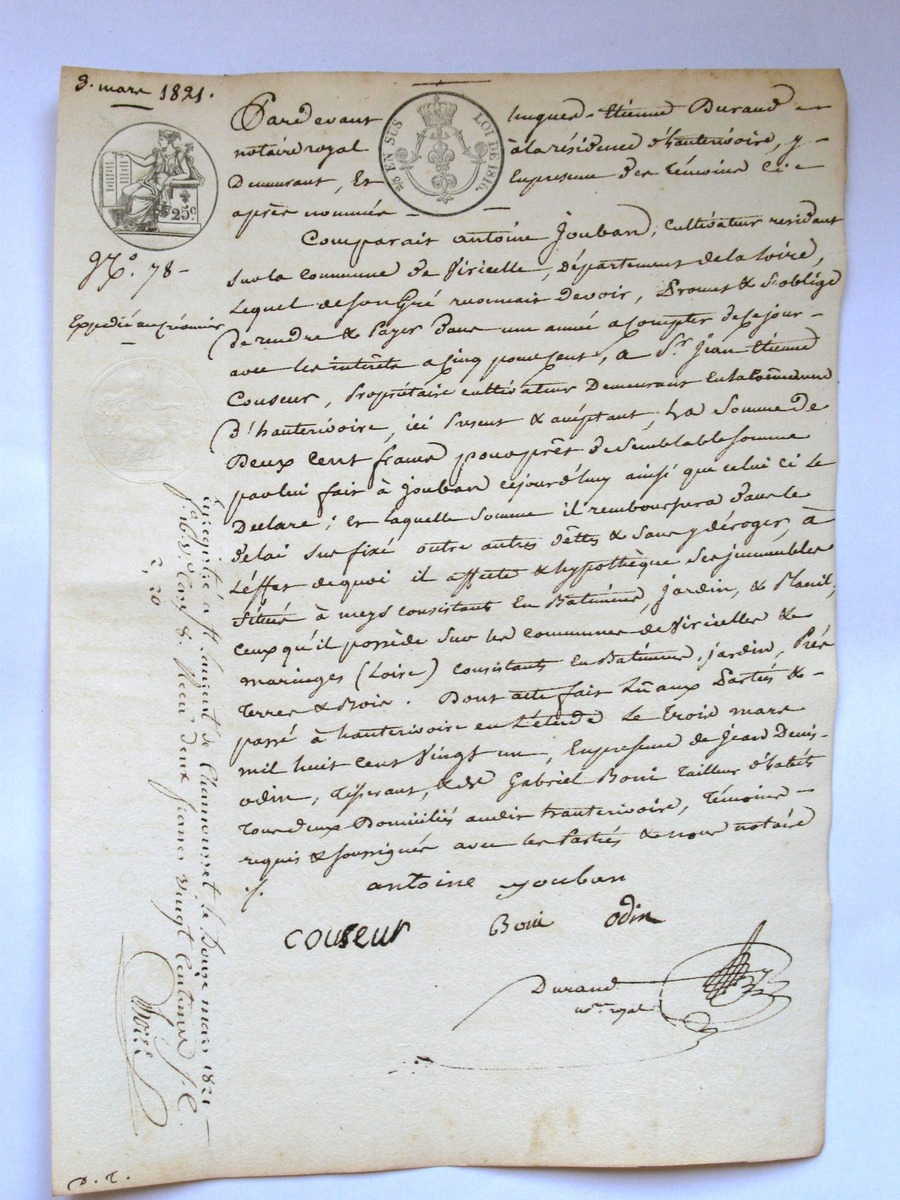 3. mars 1821.
Pardevant hugues-Etienne Durand
notaire royal à la résidence d'hauterivoire, y
Demeurant, Et En presence des témoins ci
après nommés
EN SUS LOI DE 1816.
25c
N°. 78
Expédié au créancier
Comparait antoine Jouban, cultivateur residant
Sur la Commune de Viricelle, Département de la Loire,
Lequel de Son Gré reconnais Devoir, Promet & S'oblige
de rendre & Payer Dans une année a compter de ce jour
avec les intérêts a Cinq pour Cent, a Sr. Jean Etienne
Couseur, Propriétaire cultivateur Demeurant En la Commune
d'hauterivoire, ici Present & acceptant, La Somme de
Deux Cent francs pour prêt de Semblable Somme
par lui fait à Jouban cejourd'huy ainsi que celui ci Le
Declare; Et laquelle Somme il remboursera dans le
delai Sus fixé outre autres dettes & Sans y déroger, à
L'effet de quoi il affecte & hypothèque Ses immeubles
Situés à meys consistant En Batiment, jardin, &
ceux qu'il possède Sur les communes de Viricelles &
maringes (Loire) consistants En Batiment, jardin, Prés
Terres & Bois. Dont acte fait Lû aux Parties &
passé à hauterivoire en L'étude Le Trois mars
mil huit cent Vingt un, En presence de Jean Denis
odin, Tisserant, & de Gabriel Boni Tailleur d'habits
Tous deux Domiciliés audit hauterivoire, Témoins
requis & soussignés avec les Parties & nous notaire
./.
antoine youban
couseur Boni odin
Durand
nre royal
Enregistré a St. Laurent de Chamousset le Douze mars 1821
f°. 16 V°. Case 8. Recu deux francs vingt Centimes
2, 20
D. R.